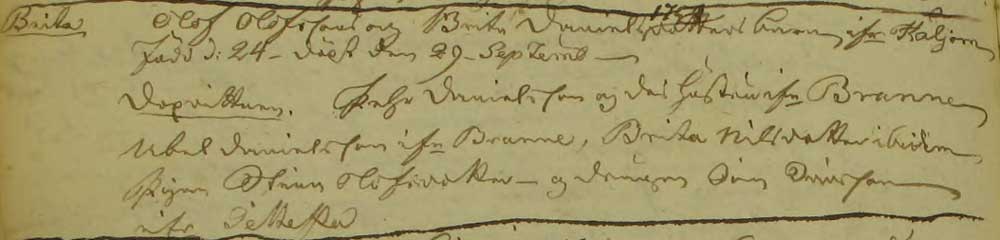 Brita Olof Olofssons og Brita Danielsdotters barn ifr Kaljorn
Född d: 24 - döpt den 29 Septemb
Dopvittnen. Pehr Danielsson og des hustru ifr Branne
Abel Danielsson ifr Branne, Brita Nilsdotter ibidem
Pigan Stina Olofsdotter og drengen
ifr